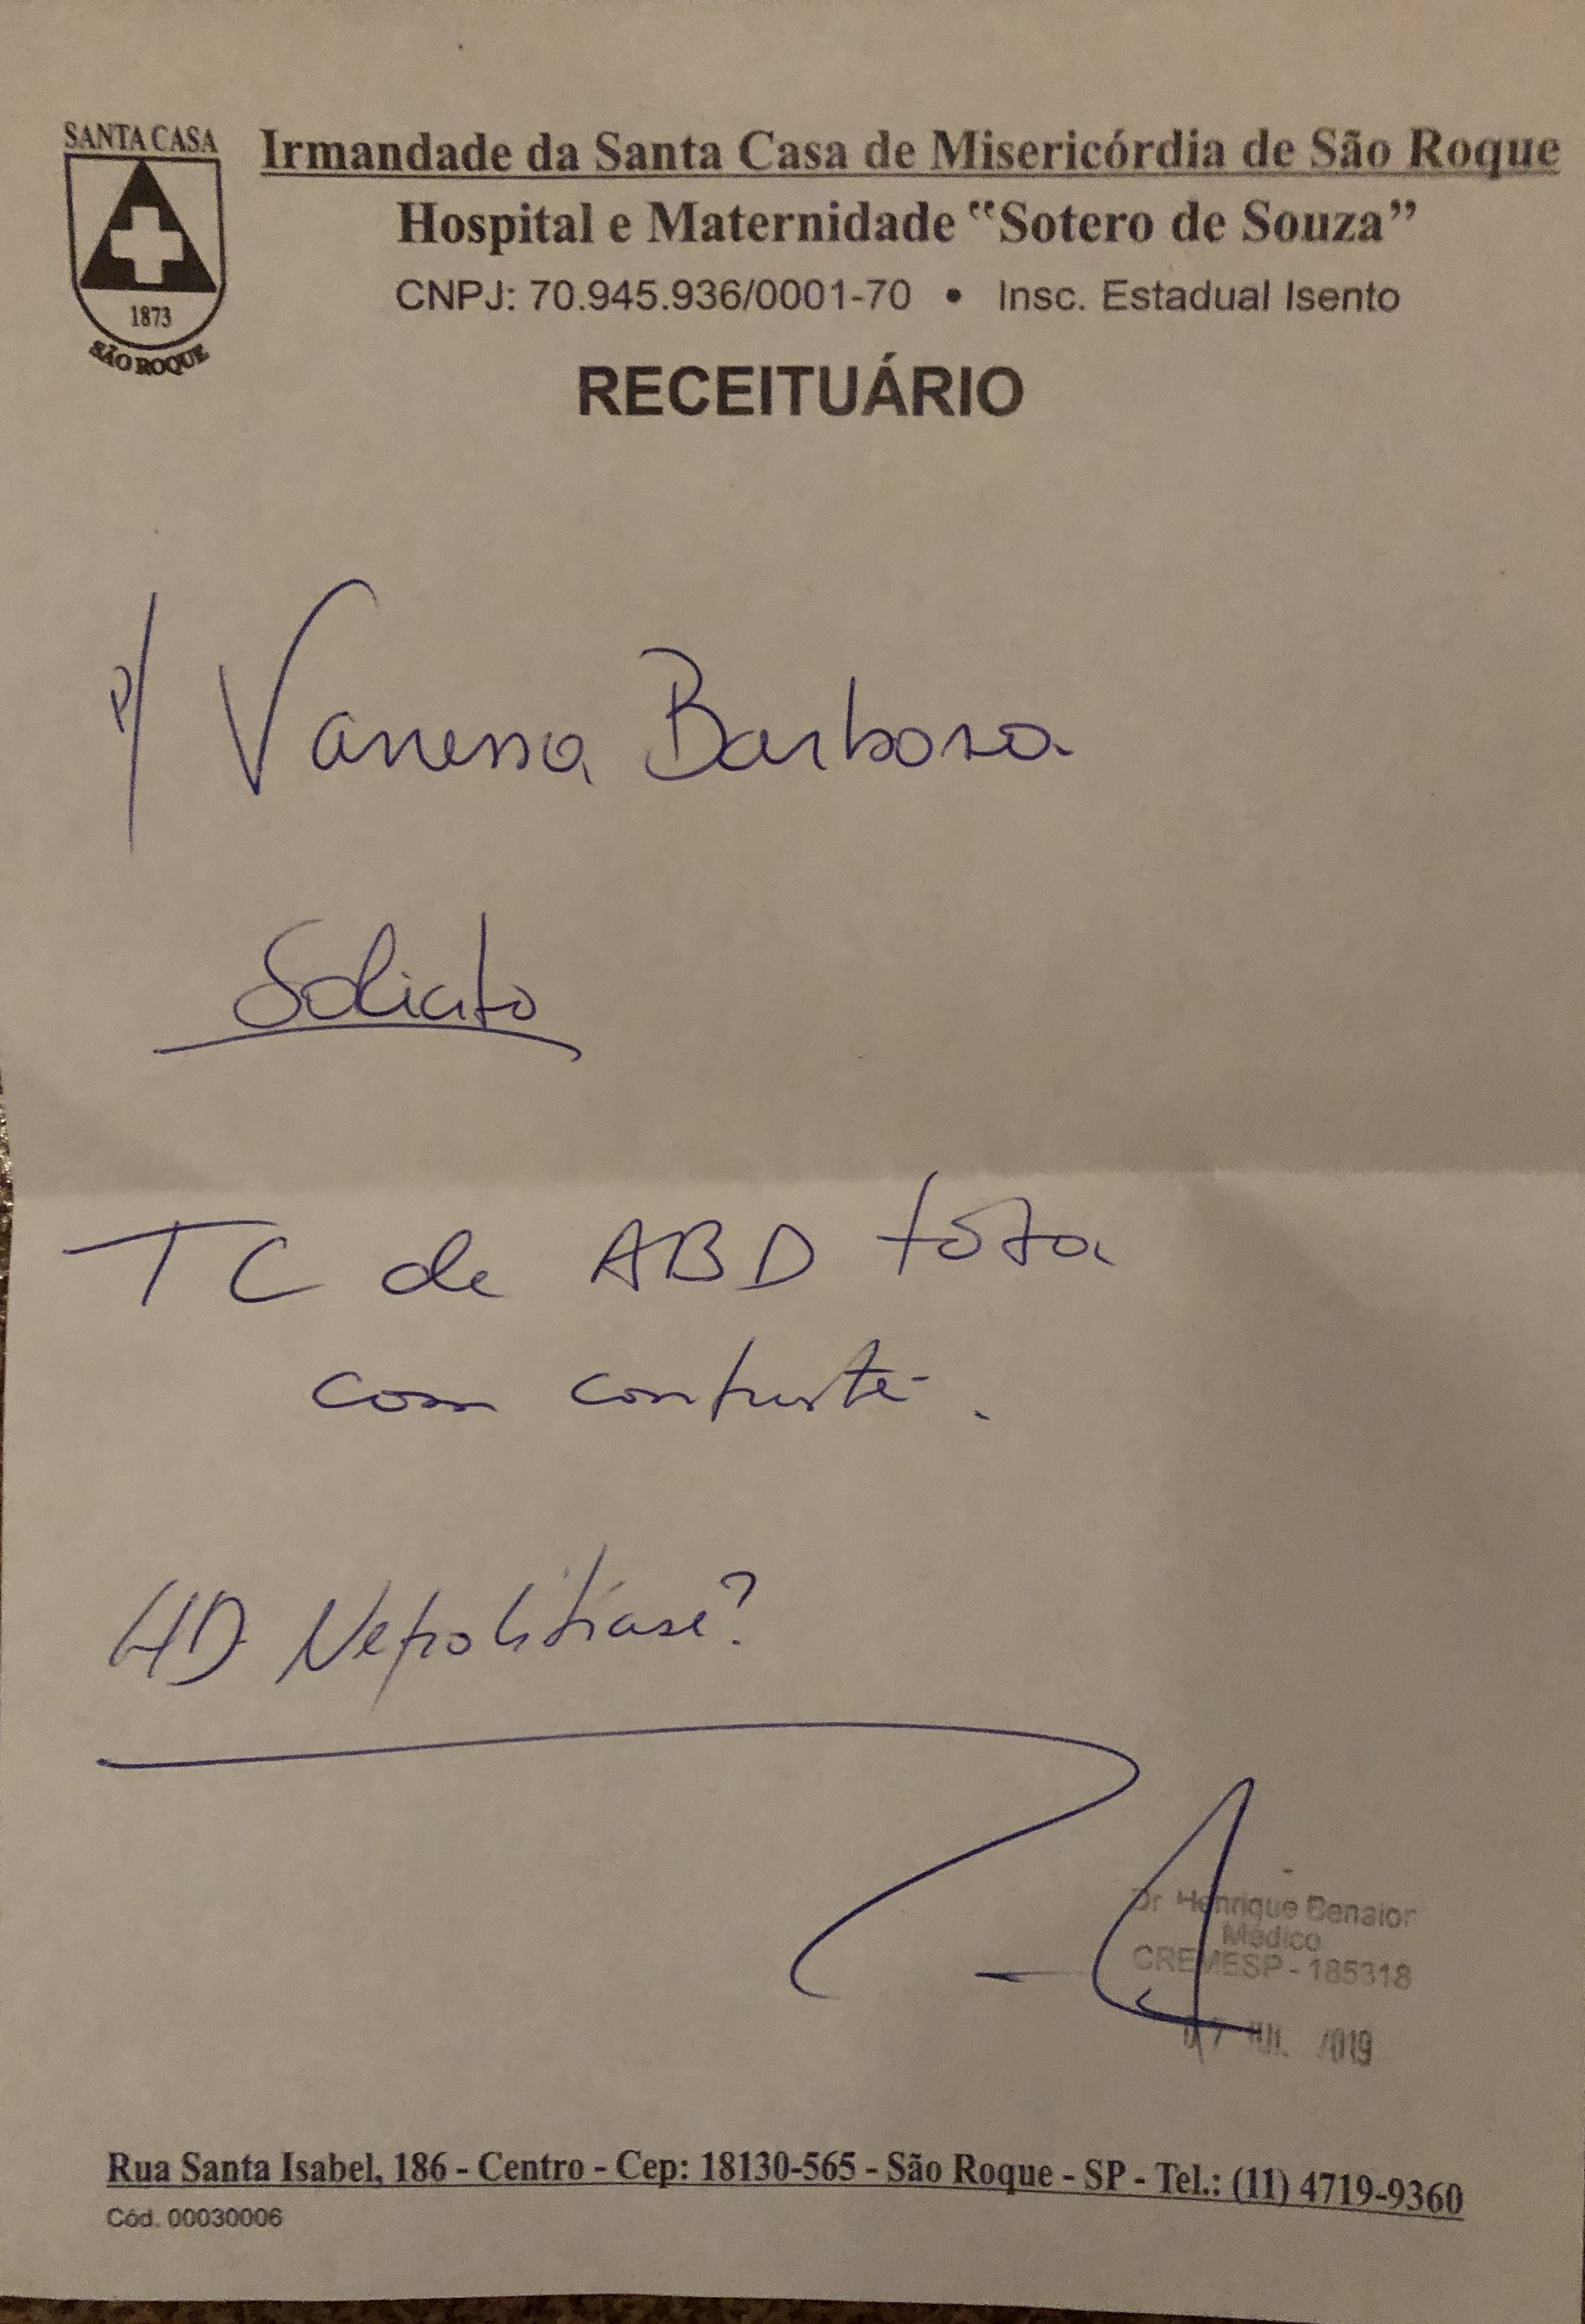 SANTA CASA
1873
SÃO ROQUE
Irmandade da Santa Casa de Misericórdia de São Roque
Hospital e Maternidade “Sotero de Souza”
CNPJ: 70.945.936/0001-70 • Insc. Estadual Isento
RECEITUÁRIO
p/ Vanessa Barbosa
Solicito
TC de ABD total
com contraste.
HD Nefrolitíase?
Dr Henrique Benaion
Médico
CREMESP - 185318
07 JUL 2019
Rua Santa Isabel, 186 - Centro - Cep: 18130-565 - São Roque - SP - Tel.: (11) 4719-9360
Cód. 00030006